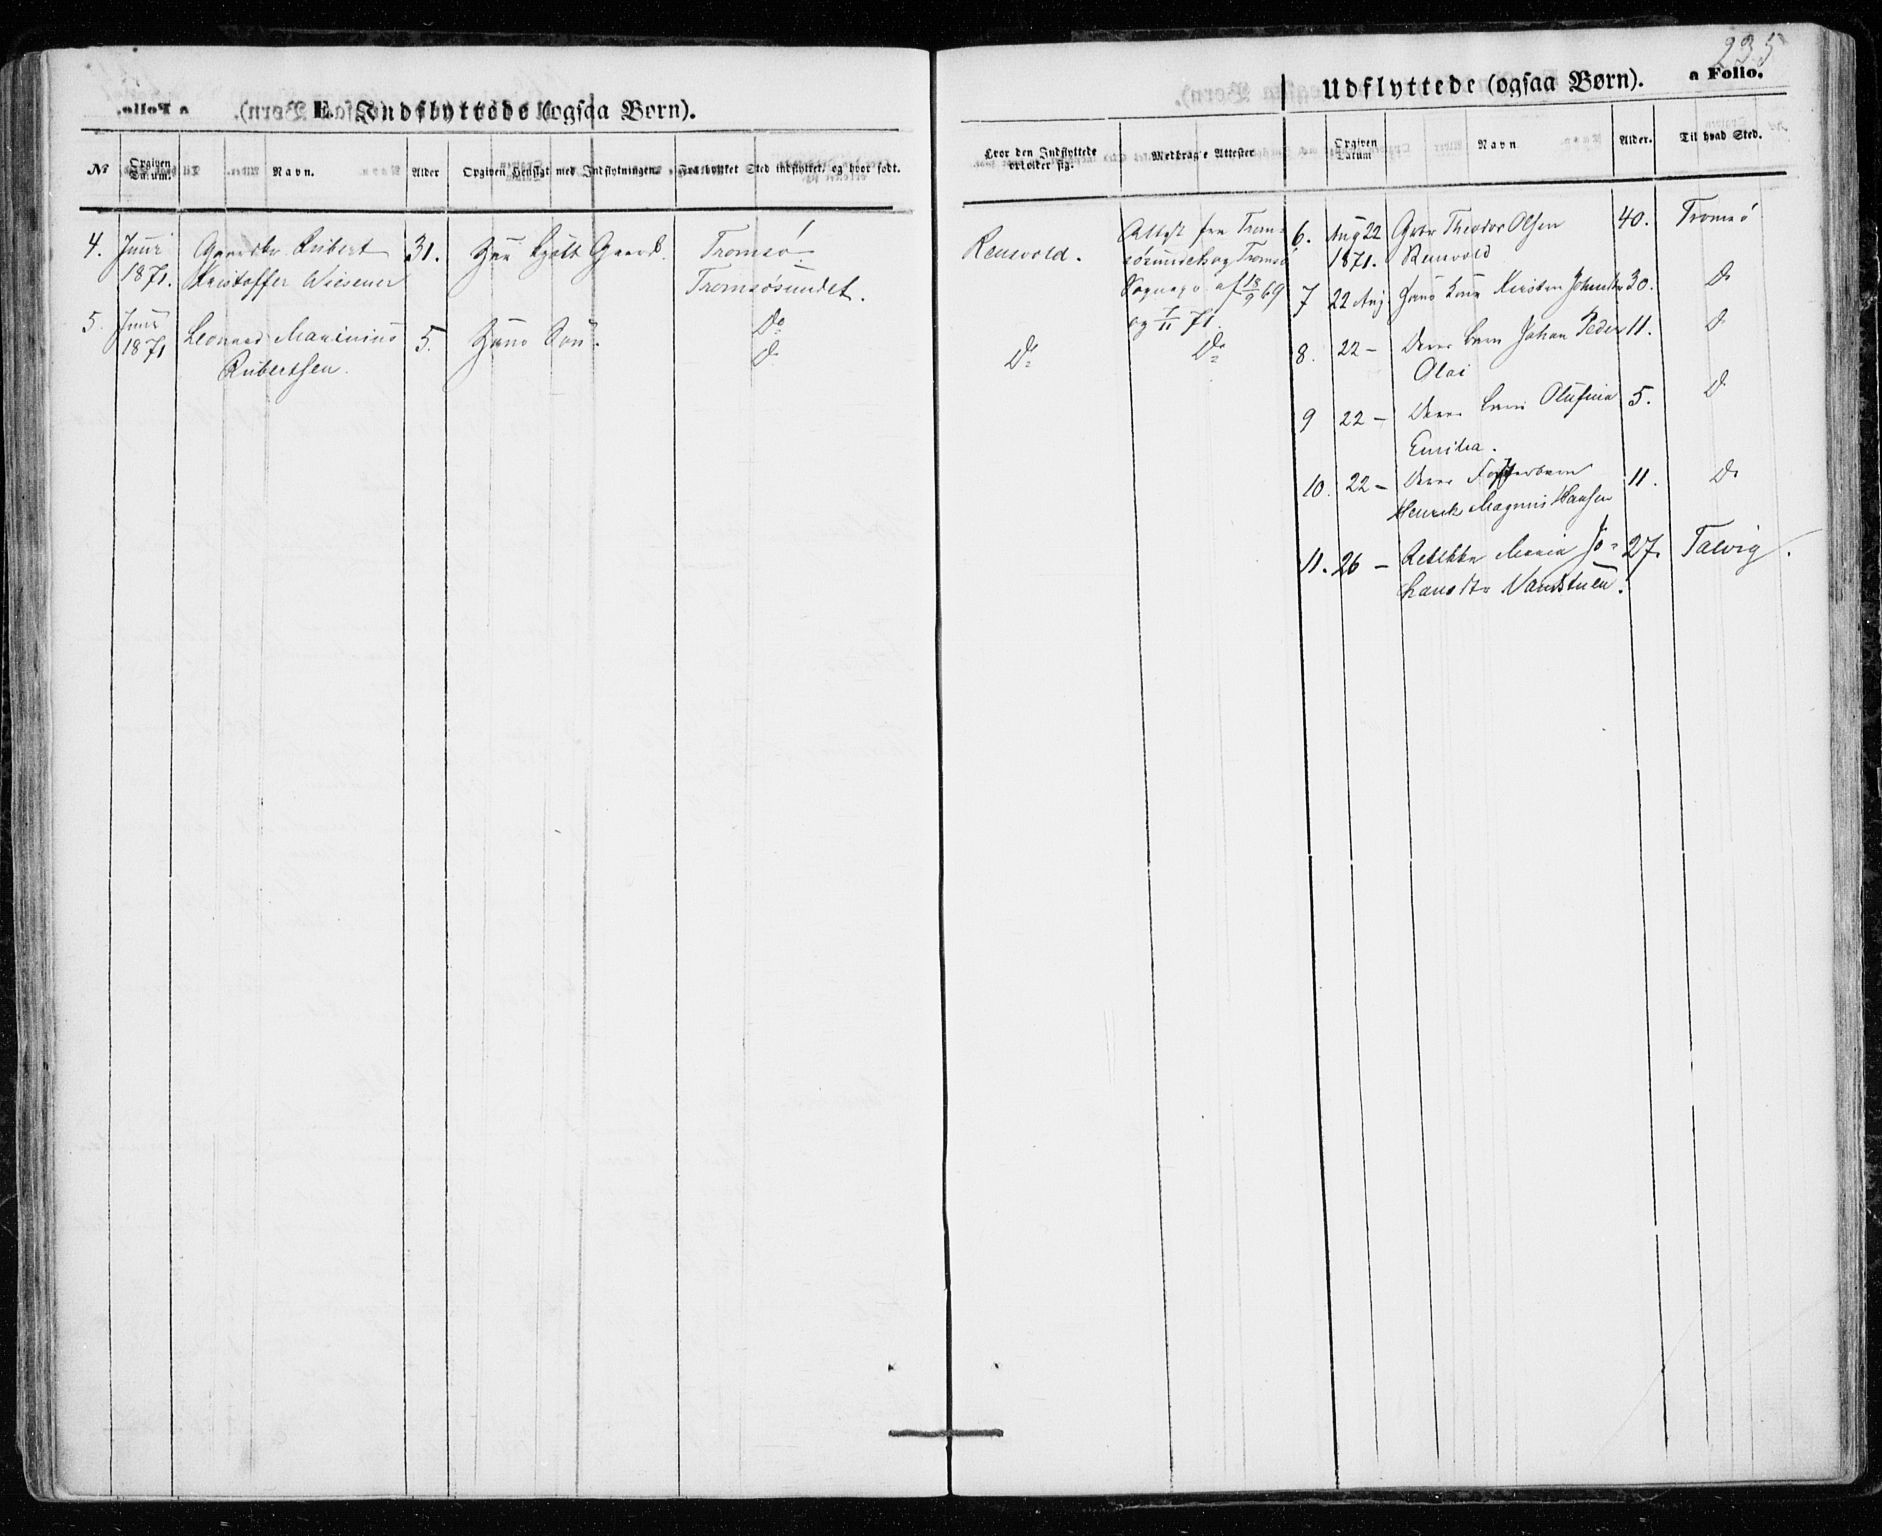 235
E. Indflyttede (ogsaa Børn).
a Folio.
No
Opgiven Datum.
Navn.
Alder
Opgiven Hensigt med Indflytningen.
Fra hvilket Sted indflyttet, og hvor født.
4.
Juni
1871.
Gaardbr Rubert
Kristoffer Wiesener
31.
Har kjøbt Gaard.
Tromsø.
Tromsøsundet.
5.
Juni
1871
Leonard Marinius
Rubertsen.
5.
Hans Søn.
Do
Do
Udflyttede (ogsaa Børn).
a Folio.
Hvor den Indflyttede opholder sig.
Medbragte Attester
Opgiven Datum
Navn
Alder.
Til hvad Sted.
Renvold.
Attest fra Trom-
søsundet og Tromsø
Sognepr. af 18/9 69
og 7/11 71.
Do
Do
6.
Aug 22
1871.
Gbr Theodor Olsen
Renvold
40.
Tromsø
7
22 Aug
Hans Kone Kirsten Johnsdtr
30.
Do
8.
22 –
Deres Barn Johan Peder
Olai
11.
Do
9
22 –
Deres Barn Olufina
Emilia.
5.
Do
10.
22 –
Deres Fosterbarn
Henrik Magnus Hansen
11.
Do
11.
26 –
Rebekka Maria Jo-
hansdtr Vandstuen.
27.
Talvig.